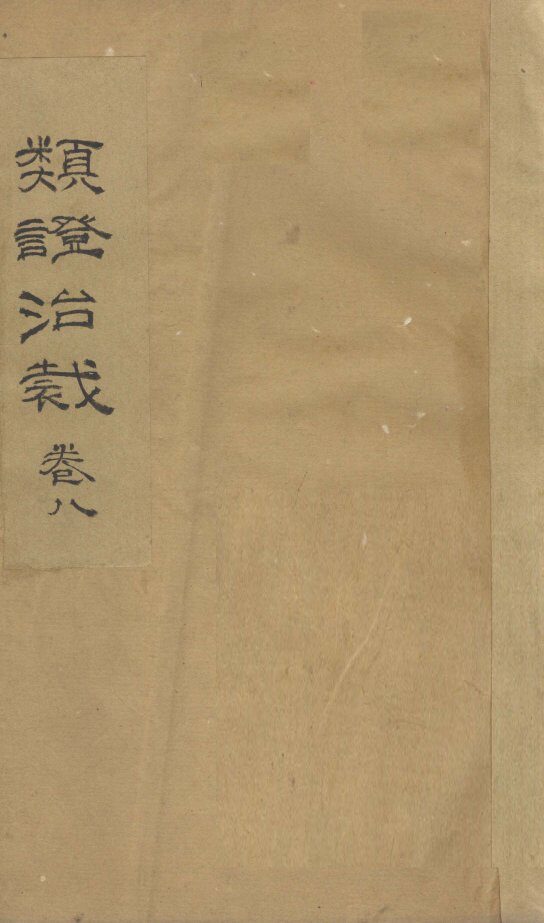 類證治裁
卷八